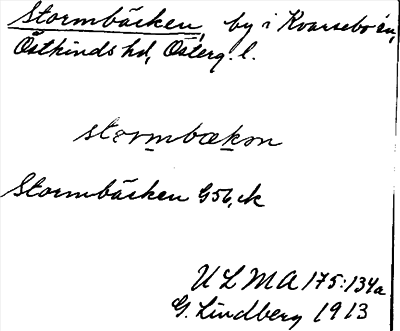 Stormbäcken, by i Kvarsebo sn,
Östkinds hd, Österg. l.
stormbækən
Stormbäcken G56, ek
ULMA 175:134a
G. Lindberg 1913